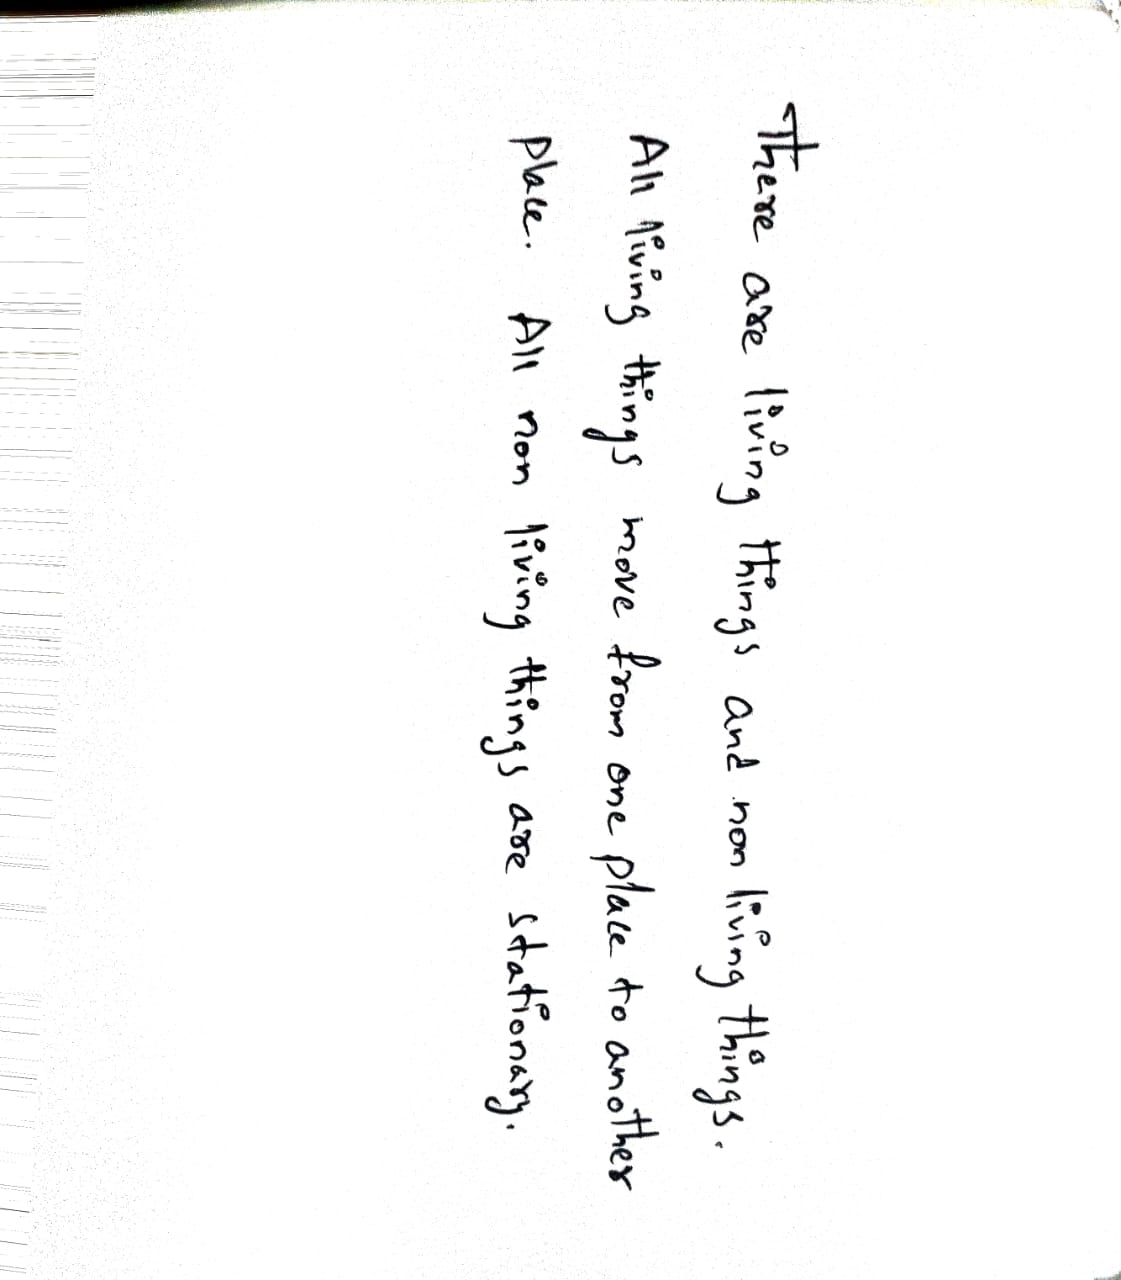 There are living things and non living things.
All living things move from one place to another
place. All non living things are stationary.